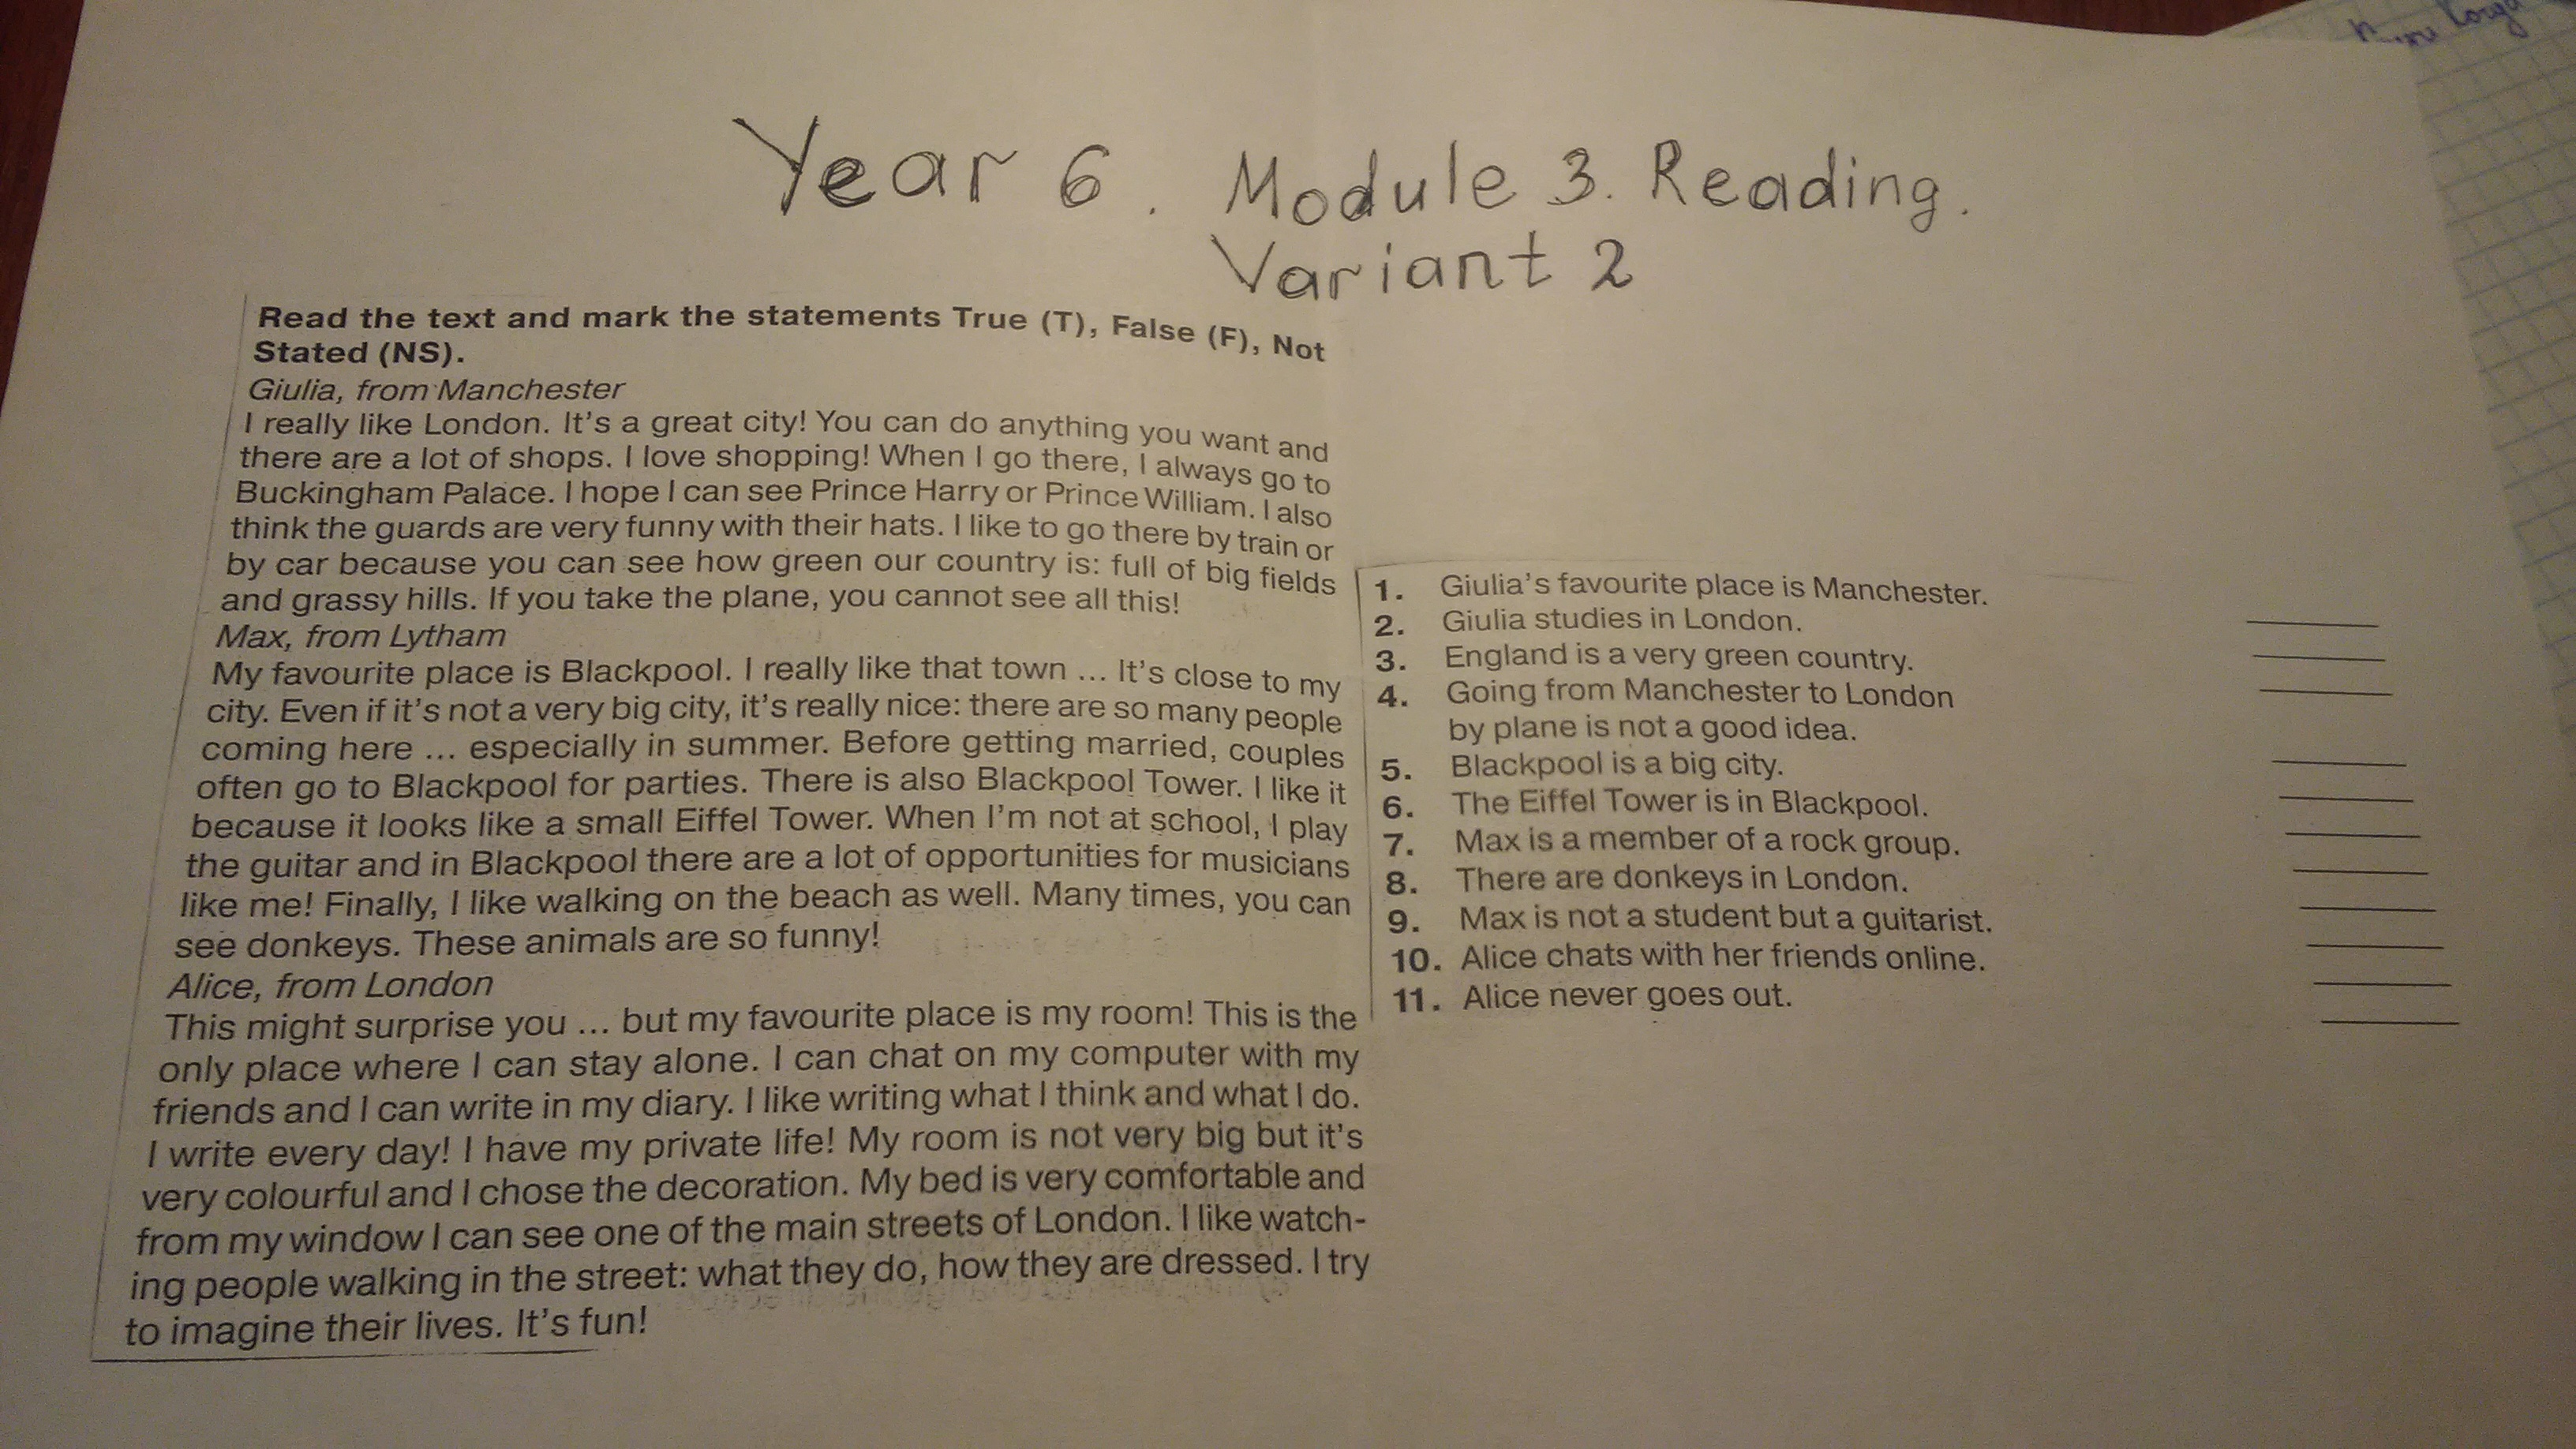 Year 6. Module 3. Reading.
Variant 2
Read the text and mark the statements True (T), False (F), Not
Stated (NS).
Giulia, from Manchester
I really like London. It's a great city! You can do anything you want and
there are a lot of shops. I love shopping! When I go there, I always go to
Buckingham Palace. I hope I can see Prince Harry or Prince William. I also
think the guards are very funny with their hats. I like to go there by train or
by car because you can see how green our country is: full of big fields
and grassy hills. If you take the plane, you cannot see all this!
Max, from Lytham
My favourite place is Blackpool. I really like that town ... It's close to my
city. Even if it's not a very big city, it's really nice: there are so many people
coming here ... especially in summer. Before getting married, couples
often go to Blackpool for parties. There is also Blackpool Tower. I like it
because it looks like a small Eiffel Tower. When I'm not at school, I play
the guitar and in Blackpool there are a lot of opportunities for musicians
like me! Finally, I like walking on the beach as well. Many times, you can
see donkeys. These animals are so funny!
Alice, from London
This might surprise you ... but my favourite place is my room! This is the
only place where I can stay alone. I can chat on my computer with my
friends and I can write in my diary. I like writing what I think and what I do.
I write every day! I have my private life! My room is not very big but it's
very colourful and I chose the decoration. My bed is very comfortable and
from my window I can see one of the main streets of London. I like watch-
ing people walking in the street: what they do, how they are dressed. I try
to imagine their lives. It's fun!
1. Giulia's favourite place is Manchester.
2. Giulia studies in London.
3. England is a very green country.
4. Going from Manchester to London
by plane is not a good idea.
5. Blackpool is a big city.
6. The Eiffel Tower is in Blackpool.
7. Max is a member of a rock group.
8. There are donkeys in London.
9. Max is not a student but a guitarist.
10. Alice chats with her friends online.
11. Alice never goes out.